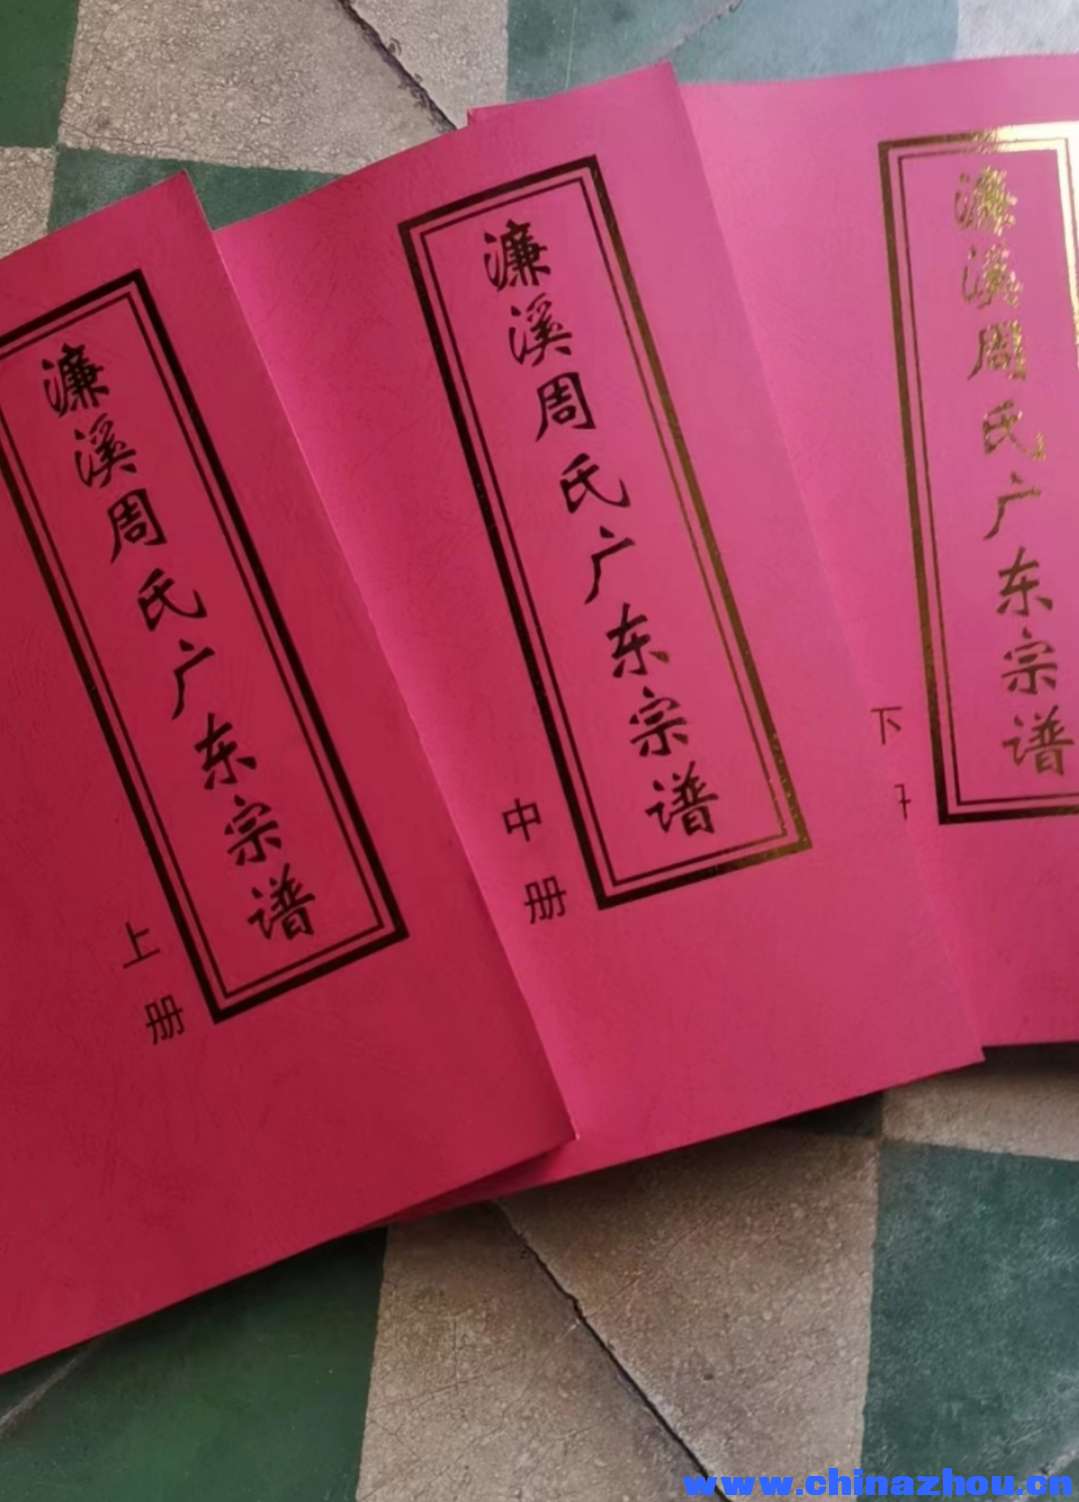 濂溪周氏广东宗谱
上册
濂溪周氏广东宗谱
中册
濂溪周氏广东宗谱
下
www.chinazhou.cn